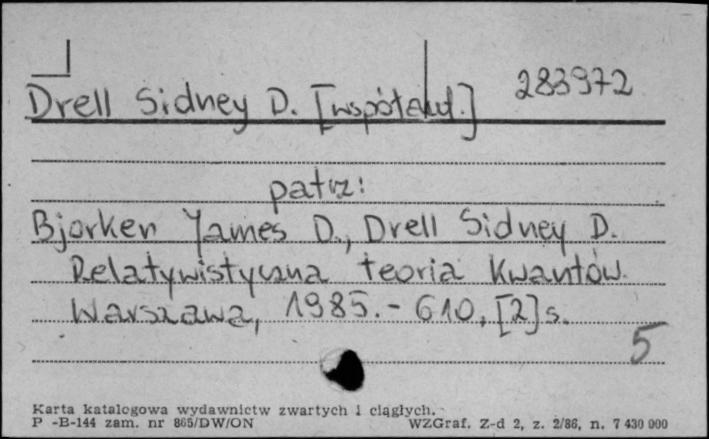 Drell Sidney D. [współaut.] 283972
patrz:
Bjorken James D., Drell Sidney D.
Relatywistyczna teoria kwantów.
Warszawa, 1985. - 610, [2] s.
5
Karta katalogowa wydawnictw zwartych i ciągłych.
P -B-144 zam. nr 865/DW/ON WZGraf. Z-d 2, z. 2/86, n. 7 430 000